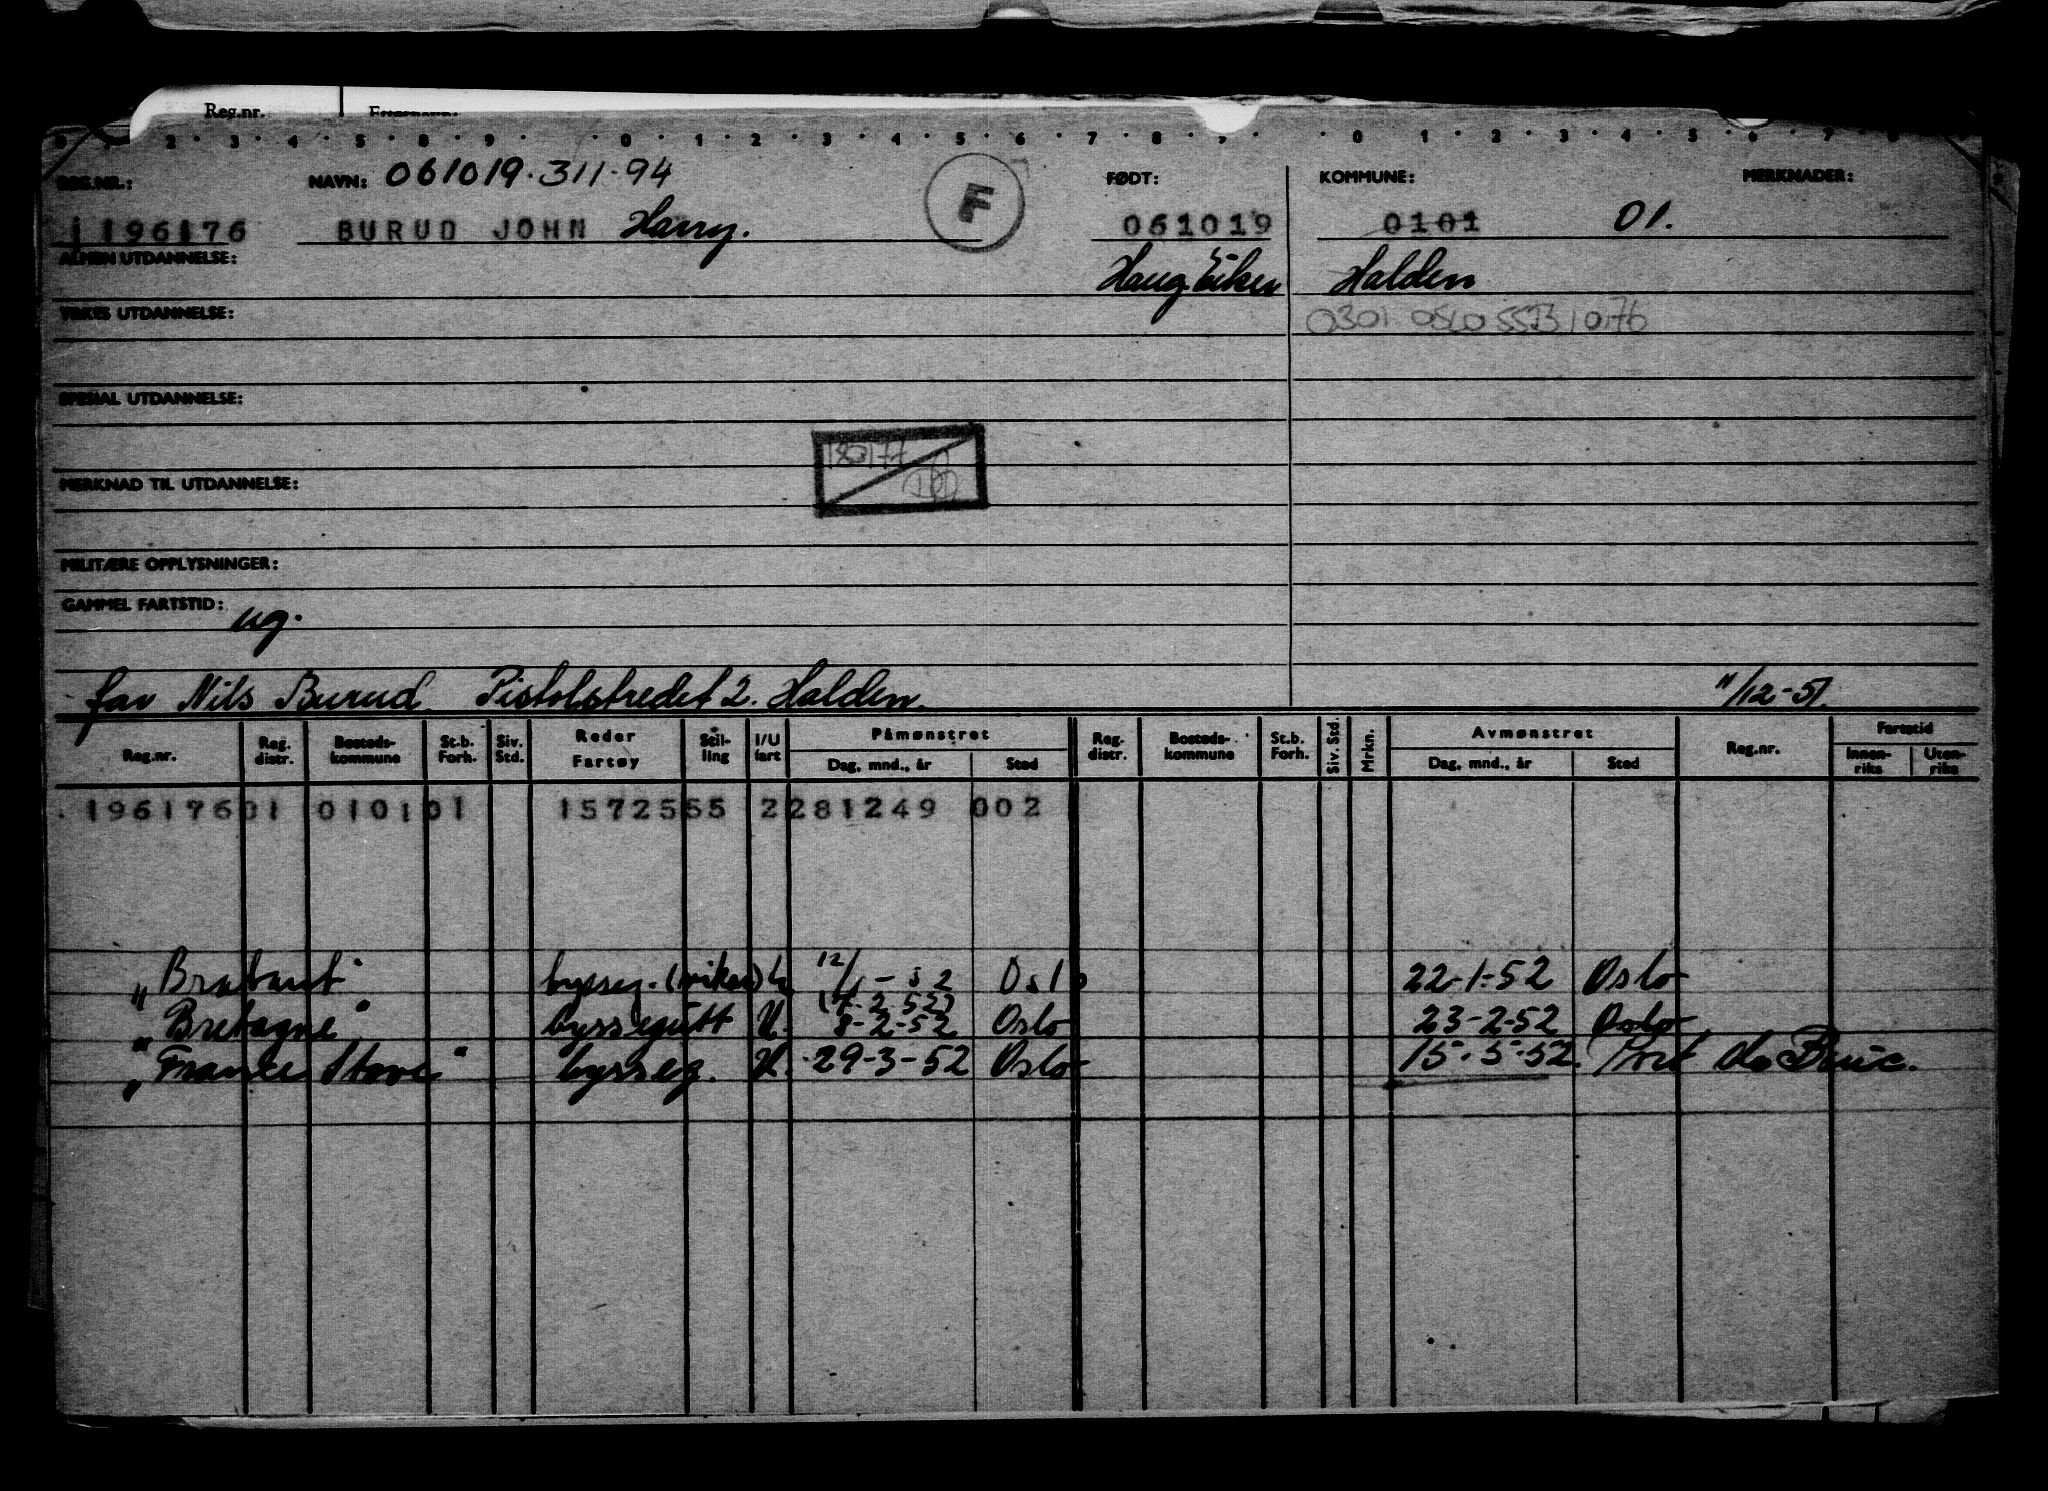 Reg.nr.
REG.NR.: NAVN: 061019.311.94 F FØDT: KOMMUNE: MERKNADER:
196176 BURUD JOHN Harry. 061019 0101 01.
ALMEN UTDANNELSE: Haug. Eiker Halden
YRKES UTDANNELSE: 0301
SPESIAL UTDANNELSE:
180177
MERKNAD TIL UTDANNELSE:
MILITÆRE OPPLYSNINGER:
GAMMEL FARTSTID: ug.
far Nils Burud. Pistolstredet 2. Halden. 11/12-51.
Reg.nr. Reg. distr. Bosteds-kommune St.b. Forh. Siv. Std. Reder Fartøy Stil-ling I/U fart Påmønstret Dag, mnd., år Sted Reg. distr. Bosteds-kommune St.b. Forh. Siv. Std. Mrkn. Avmønstret Dag, mnd., år Sted Reg.nr. Fartstid Innen-riks Uten-riks
19617601 010101 1572555 2281249 002
„Brabant" bysseg. 12/1-52 Oslo 22-1-52 Oslo
(7-2 52)
„Bretagne" byssegutt U. 8-2-52 Oslo 23-2-52 Oslo
„France Stove" bysseg. U. 29-3-52 Oslo 15-5-52. Port de Bouc.